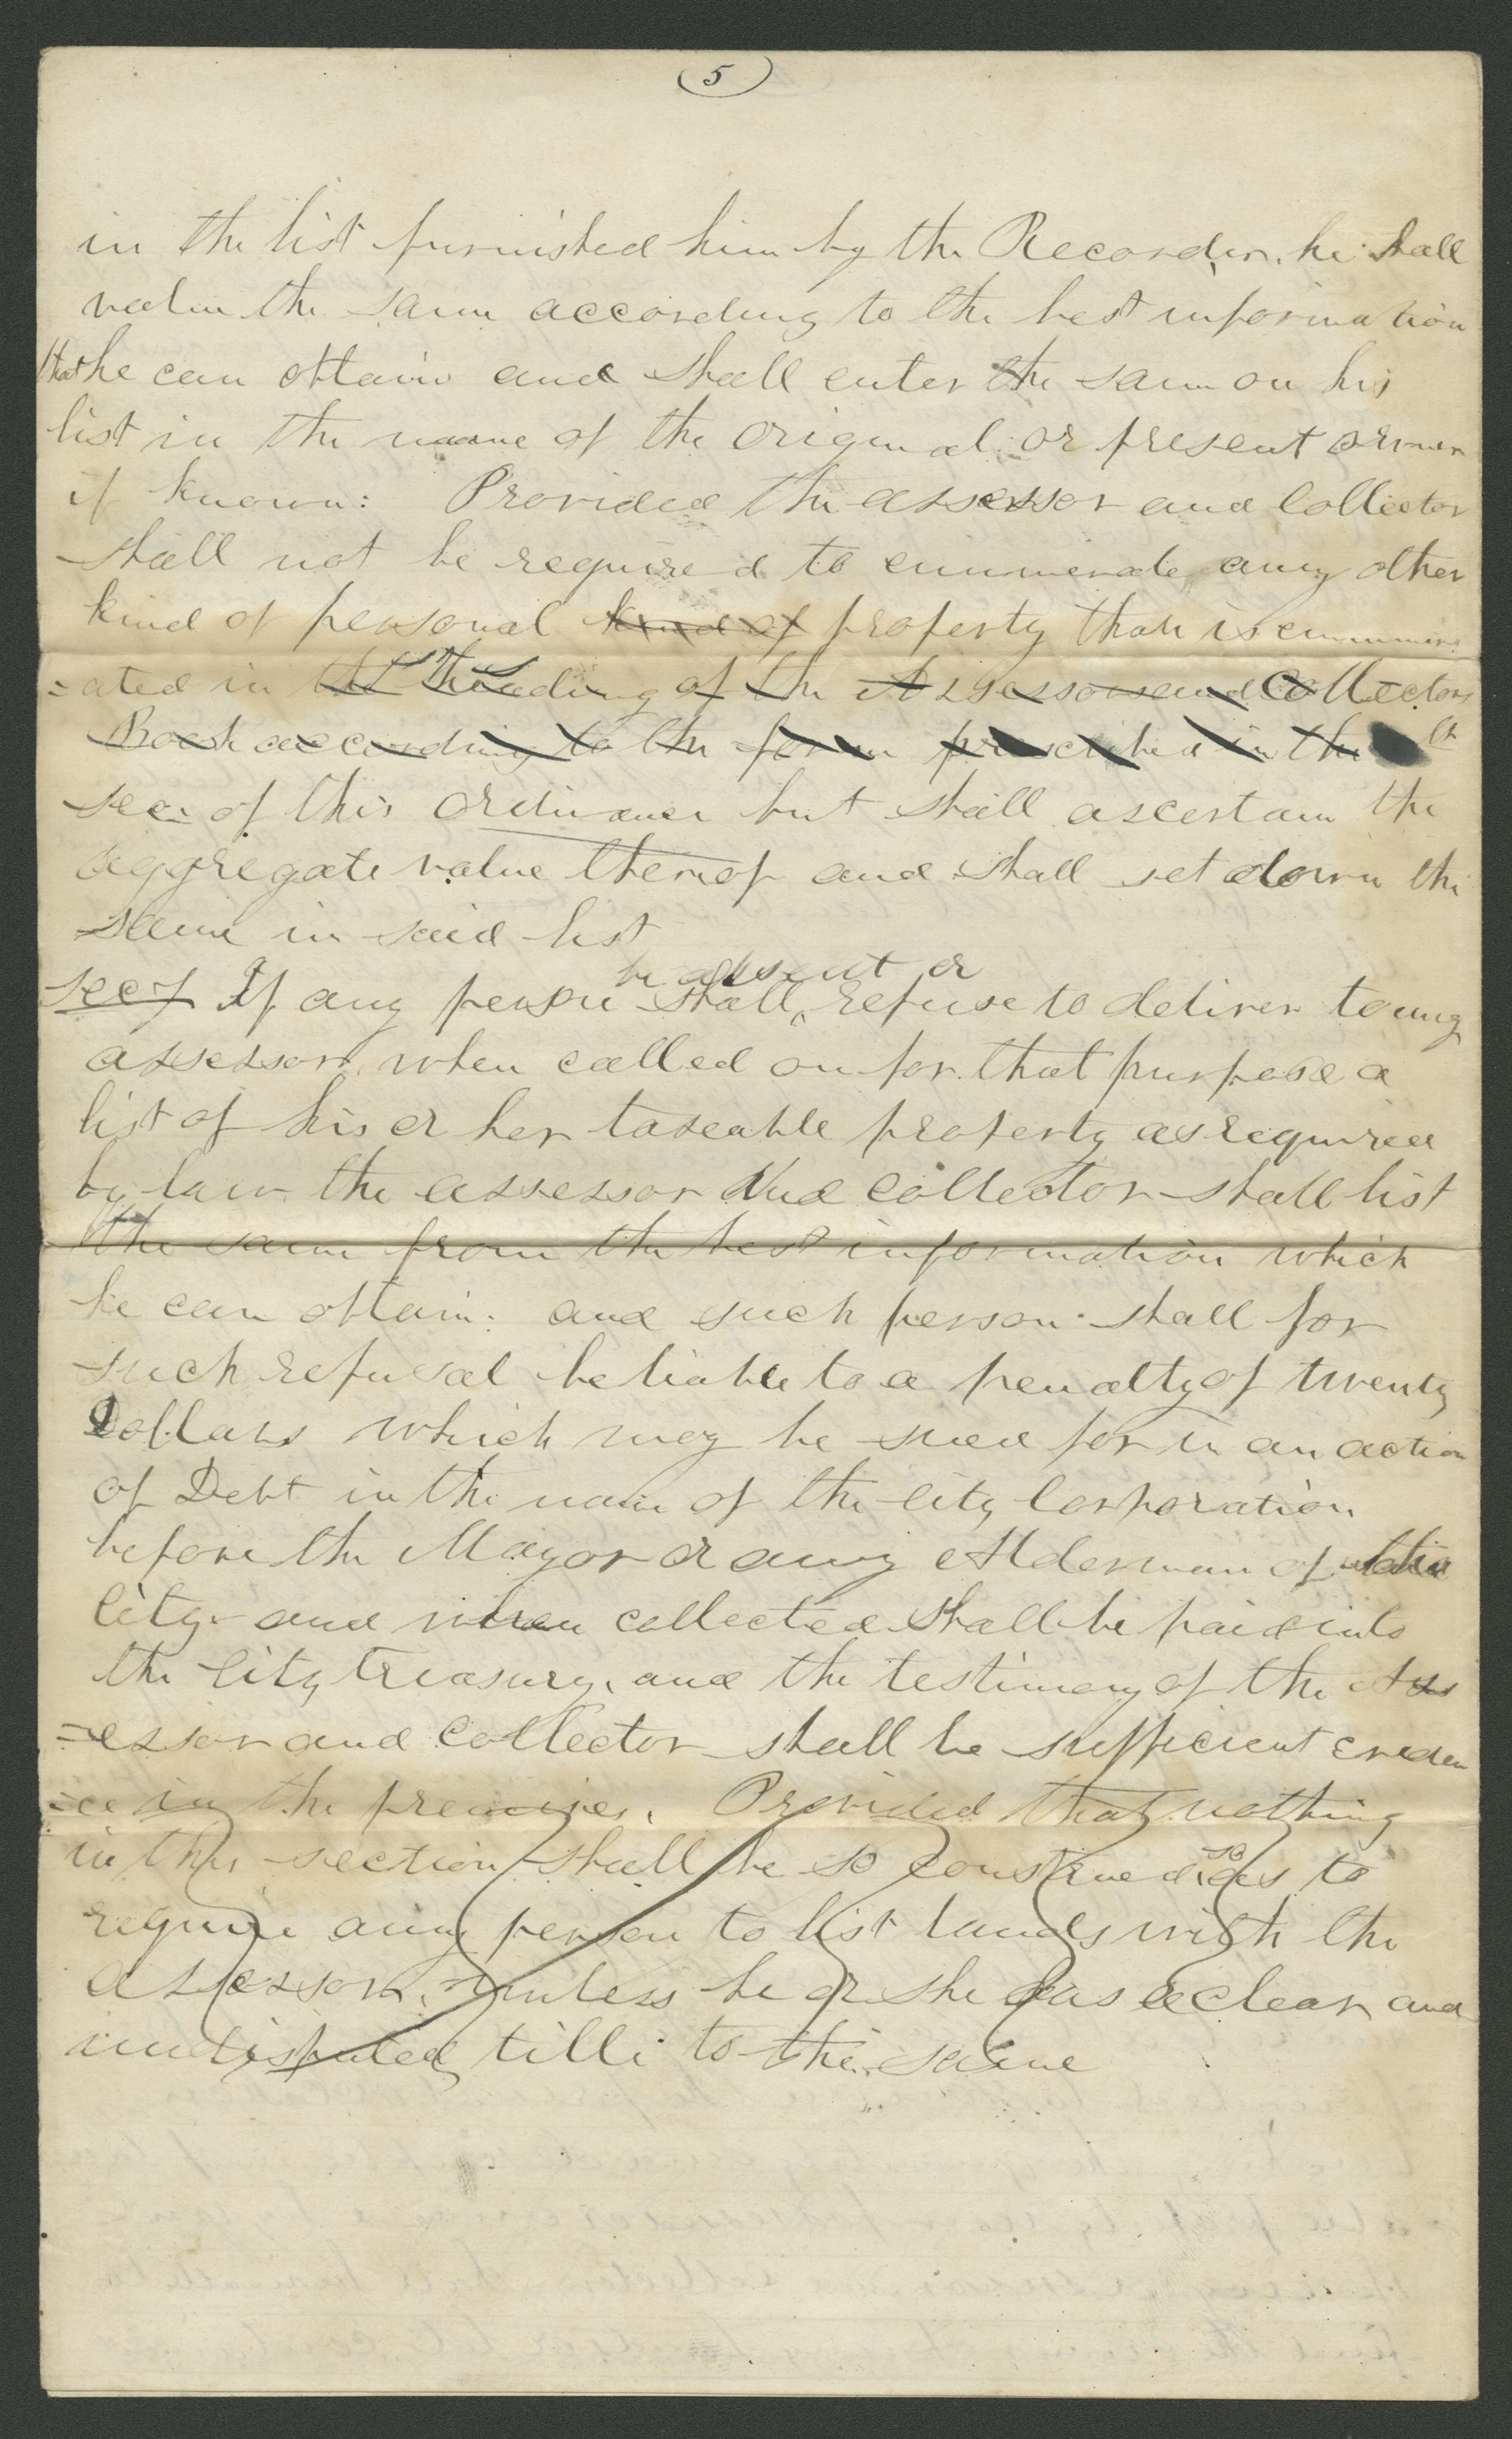 5
in the list furnished him by the Recorder, he shall
value the same according to the best information
that he can obtain and shall enter the same on his
list in the name of the original or present owner
if known: Provided the assessor and Collector
shall not be required to enumerate any other
kind of personal kind of property than is enumer
=ated in the heading of the Assessors and Collectors
Book according to the form prescribed in the
sec of this ordinance but shall ascertain the
aggregate value thereof and shall set down the
same in said list
be absent or
sec 7 If any person shall refuse to deliver to any
assessor, when called on for that purpose a
list of his or her taxeable property as required
by law the assessor And collector shall list
the same from the best information which
he can obtain: and such person shall for
such refusal be liable to a penalty of twenty
Dollars which may be sued for in an action
of Debt in the name of the City Corporation
before the Mayor or any Alderman of
City and when collected shall be paid into
the City treasury, and the testimony of the Ass
=essor and Collector shall be sufficient eviden
=ce in the premises. Provided that nothing
in this section shall be so construed so as to
require any person to list lands with the
assessor, unless he or she has a clear and
undisputed title to the same